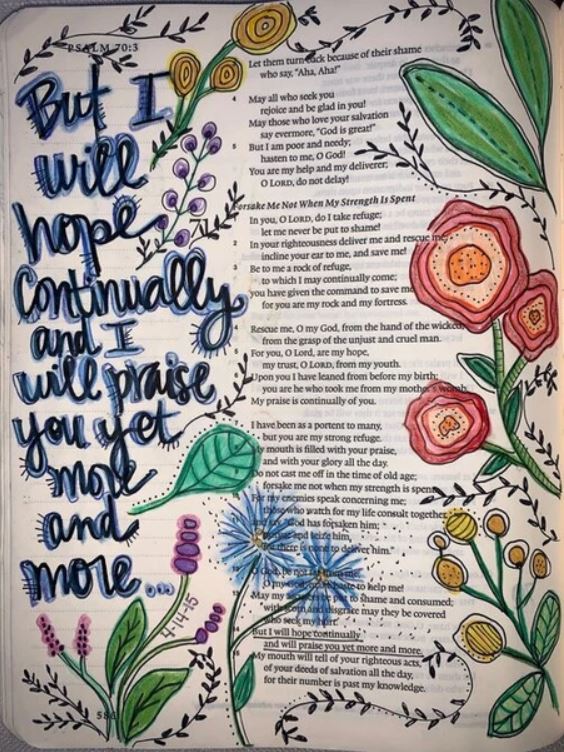 PSALM 70:3
But I
will
hope
Continually
and I
will praise
you yet
more
and
more...
4-14-15
586
Let them turn back because of their shame
who say, "Aha, Aha!"
4 May all who seek you
rejoice and be glad in you!
May those who love your salvation
say evermore, "God is great!"
5 But I am poor and needy;
hasten to me, O God!
You are my help and my deliverer;
O LORD, do not delay!
Forsake Me Not When My Strength Is Spent
71 In you, O LORD, do I take refuge;
let me never be put to shame!
2 In your righteousness deliver me and rescue me;
incline your ear to me, and save me!
3 Be to me a rock of refuge,
to which I may continually come;
you have given the command to save me,
for you are my rock and my fortress.
Rescue me, O my God, from the hand of the wicked,
from the grasp of the unjust and cruel man.
5 For you, O Lord, are my hope,
my trust, O LORD, from my youth.
Upon you I have leaned from before my birth;
you are he who took me from my mother's womb.
My praise is continually of you.
I have been as a portent to many,
but you are my strong refuge.
My mouth is filled with your praise,
and with glory all the day.
Do not cast me off in the time of old age;
forsake me not when my strength is spent.
For my enemies speak concerning me;
those who watch for my life consult together
and say, "God has forsaken him;
and seize him,
for there is none to deliver him."
O God, be not far from me;
O my God, haste to help me!
May my be put to shame and consumed;
with scorn and disgrace may they be covered
who seek my hurt.
But I will hope continually
and will praise you yet more and more.
My mouth will tell of your righteous acts,
of your deeds of salvation all the day,
for their number is past my knowledge.